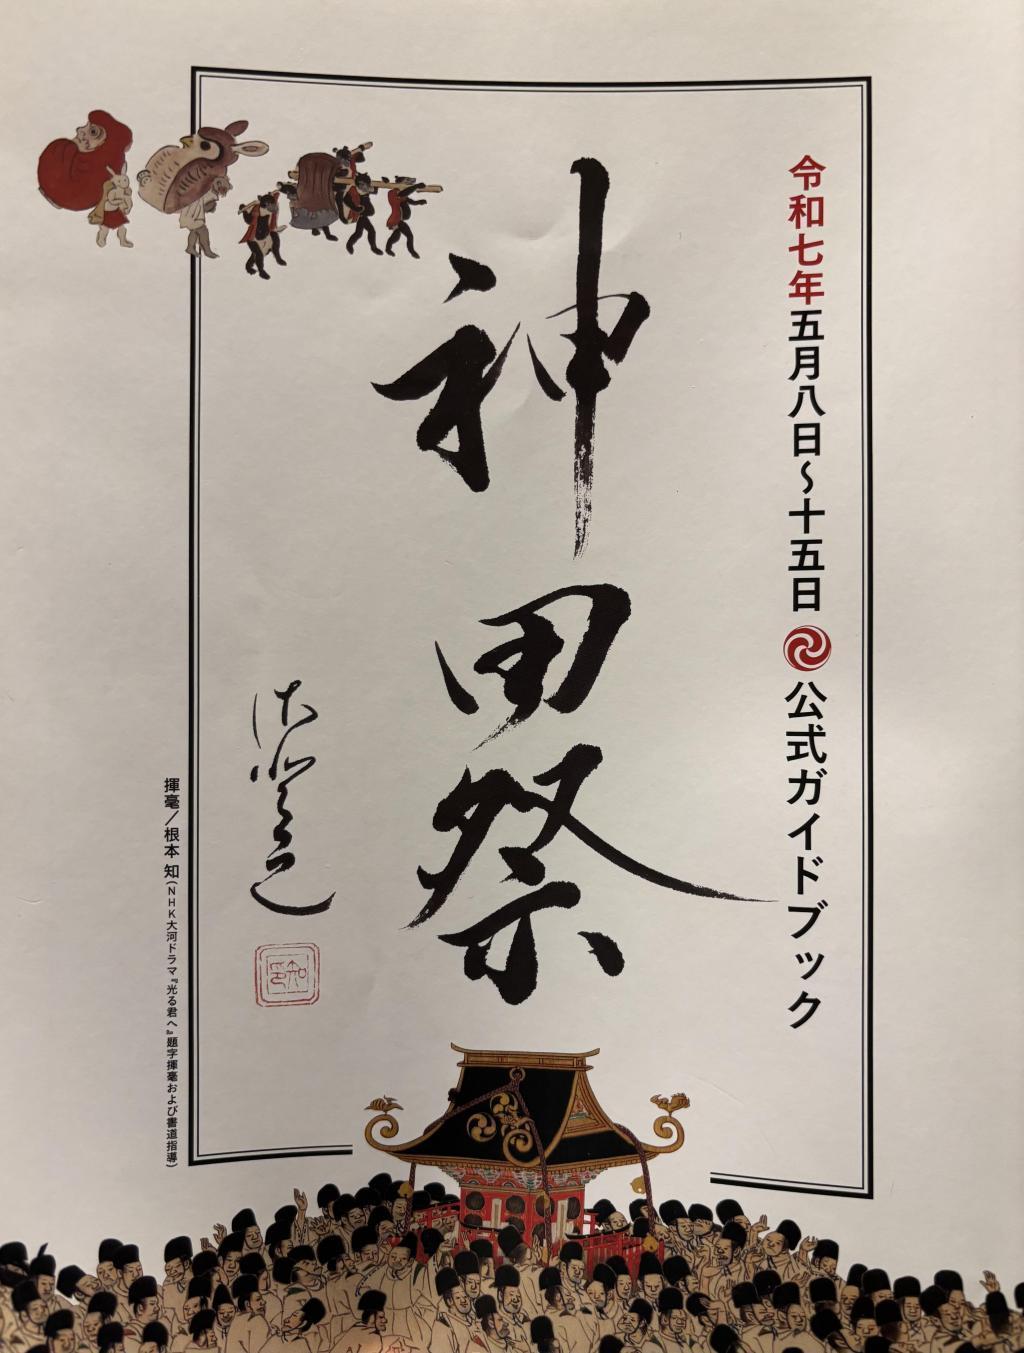 令和七年五月八日〜十五日 公式ガイドブック
神田祭
揮毫／根本 知（NHK大河ドラマ『光る君へ』題字揮毫および書道指導）